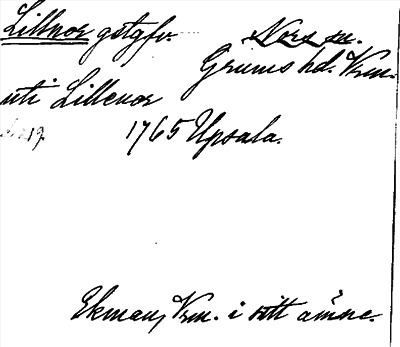 Lillnor gstgfv. Nors sn.
Grums hd. Vrm.
uti Lillenor
1765 Upsala.
Ekman, Vrm. i sitt ämne.